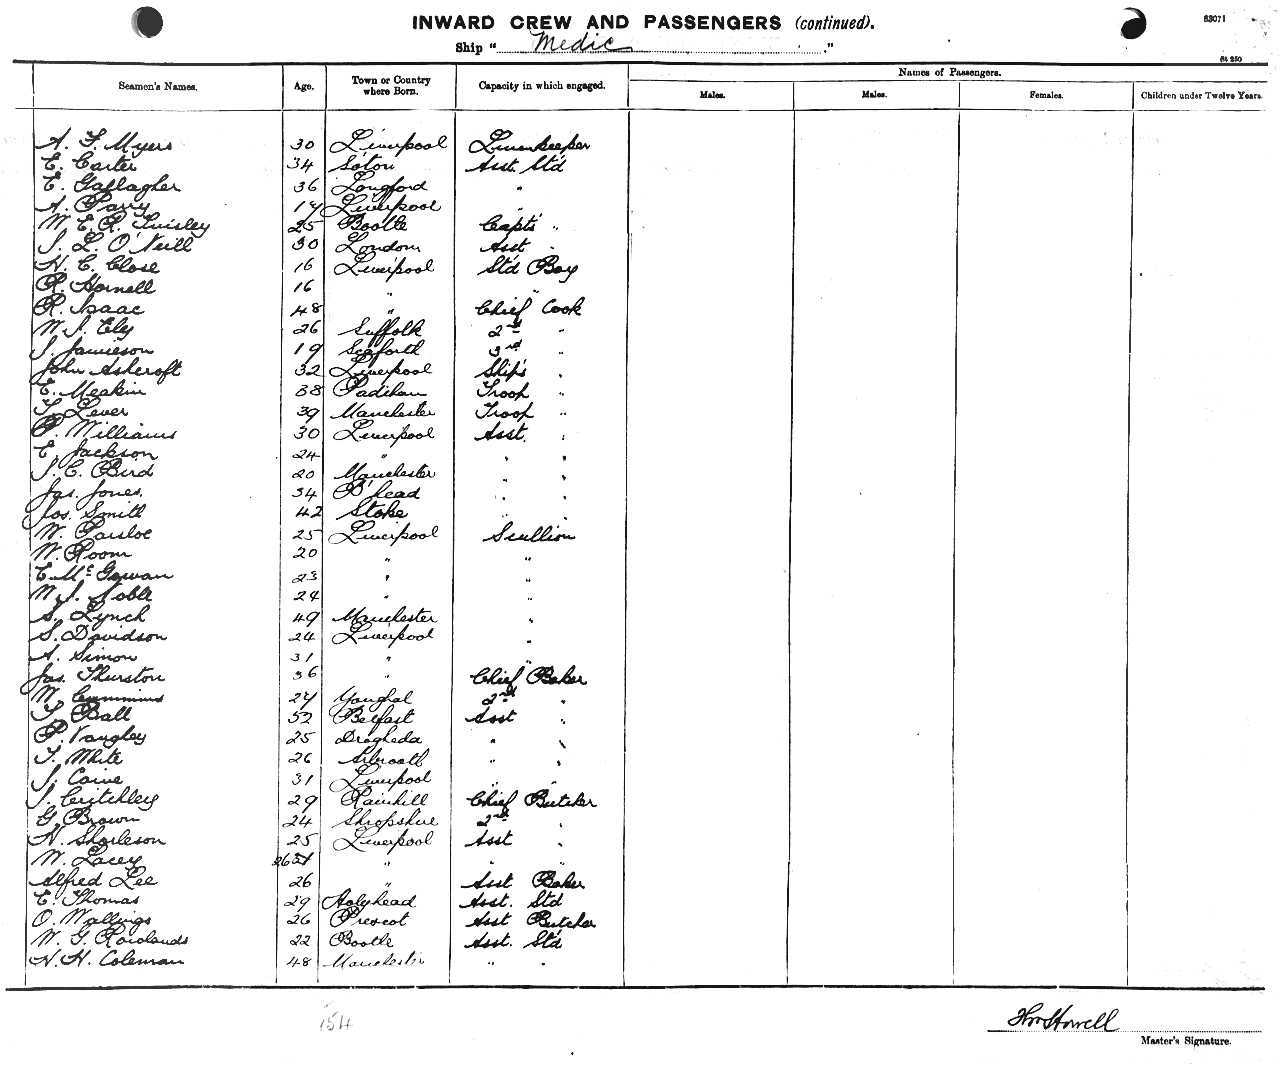 INWARD CREW AND PASSENGERS (continued).
83071
Ship "Medic"
64 250
Seamen's Names. Age. Town or Country where Born. Capacity in which engaged. Names of Passengers.
Males. Males. Females. Children under Twelve Years.
A. F. Myers 30 Liverpool Linenkeeper
E. Carter 34 So'ton Asst. Std
E. Gallagher 36 Longford "
A. Parry 19 Liverpool "
W. E. R. Tuisley 25 Bootle Capt's "
J. L. O'Neill 30 London Asst "
H. C. Close 16 Liverpool Std Boy
R. Hornell 16 " "
R. Isaac 48 " Chief Cook
W. J. Ely 26 Suffolk 2nd "
J. Jamieson 19 Seaforth 3rd "
John Ashcroft 32 Liverpool Ship's "
E. Meakin 38 Padiham Troop "
T. Lever 39 Manchester Troop "
P. Williams 30 Liverpool Asst. "
E. Jackson 24 " " "
J. C. Bird 20 Manchester " "
Jas. Jones. 34 B'head " "
Jos. Smith 42 Stoke " "
W. Parsloe 25 Liverpool Scullion
W. Room 20 " "
E. Mc Gowan 23 " "
W. J. Noble 24 " "
S. Lynch 49 Manchester "
S. Davidson 24 Liverpool "
A. Simon 31 " "
Jas. Thurston 36 " Chief Baker
W. Cummins 24 Youghal 2nd "
T. Ball 52 Belfast Asst "
P. Nangley 25 Drogheda " "
T. White 26 Arbroath " "
J. Caine 31 Liverpool " "
J. Critchley 29 Rainhill Chief Butcher
G. Brown 24 Shropshire 2nd "
H. Sharleson 25 Liverpool Asst "
W. Lacey 26 " " "
Alfred Lee 26 " Asst Baker
E. Thomas 29 Holyhead Asst. Std
O. Wallings 26 Prescot Asst Butcher
W. G. Rowlands 22 Bootle Asst. Std
H. H. Coleman 48 Manchester " "
154
Howell
Master's Signature.